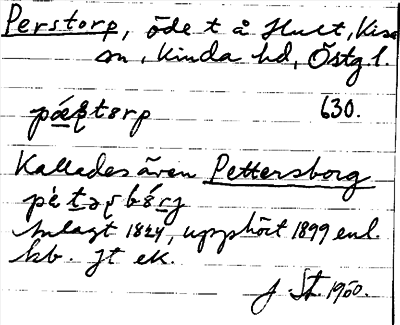 Perstorp, öde t å Hult, Kisa
sn, Kinda hd, Östg l.
630.
Kallades även Pettersborg
Anlagt 1824, upphört 1899 enl.
kb. Jt ek.
J. St. 1960.